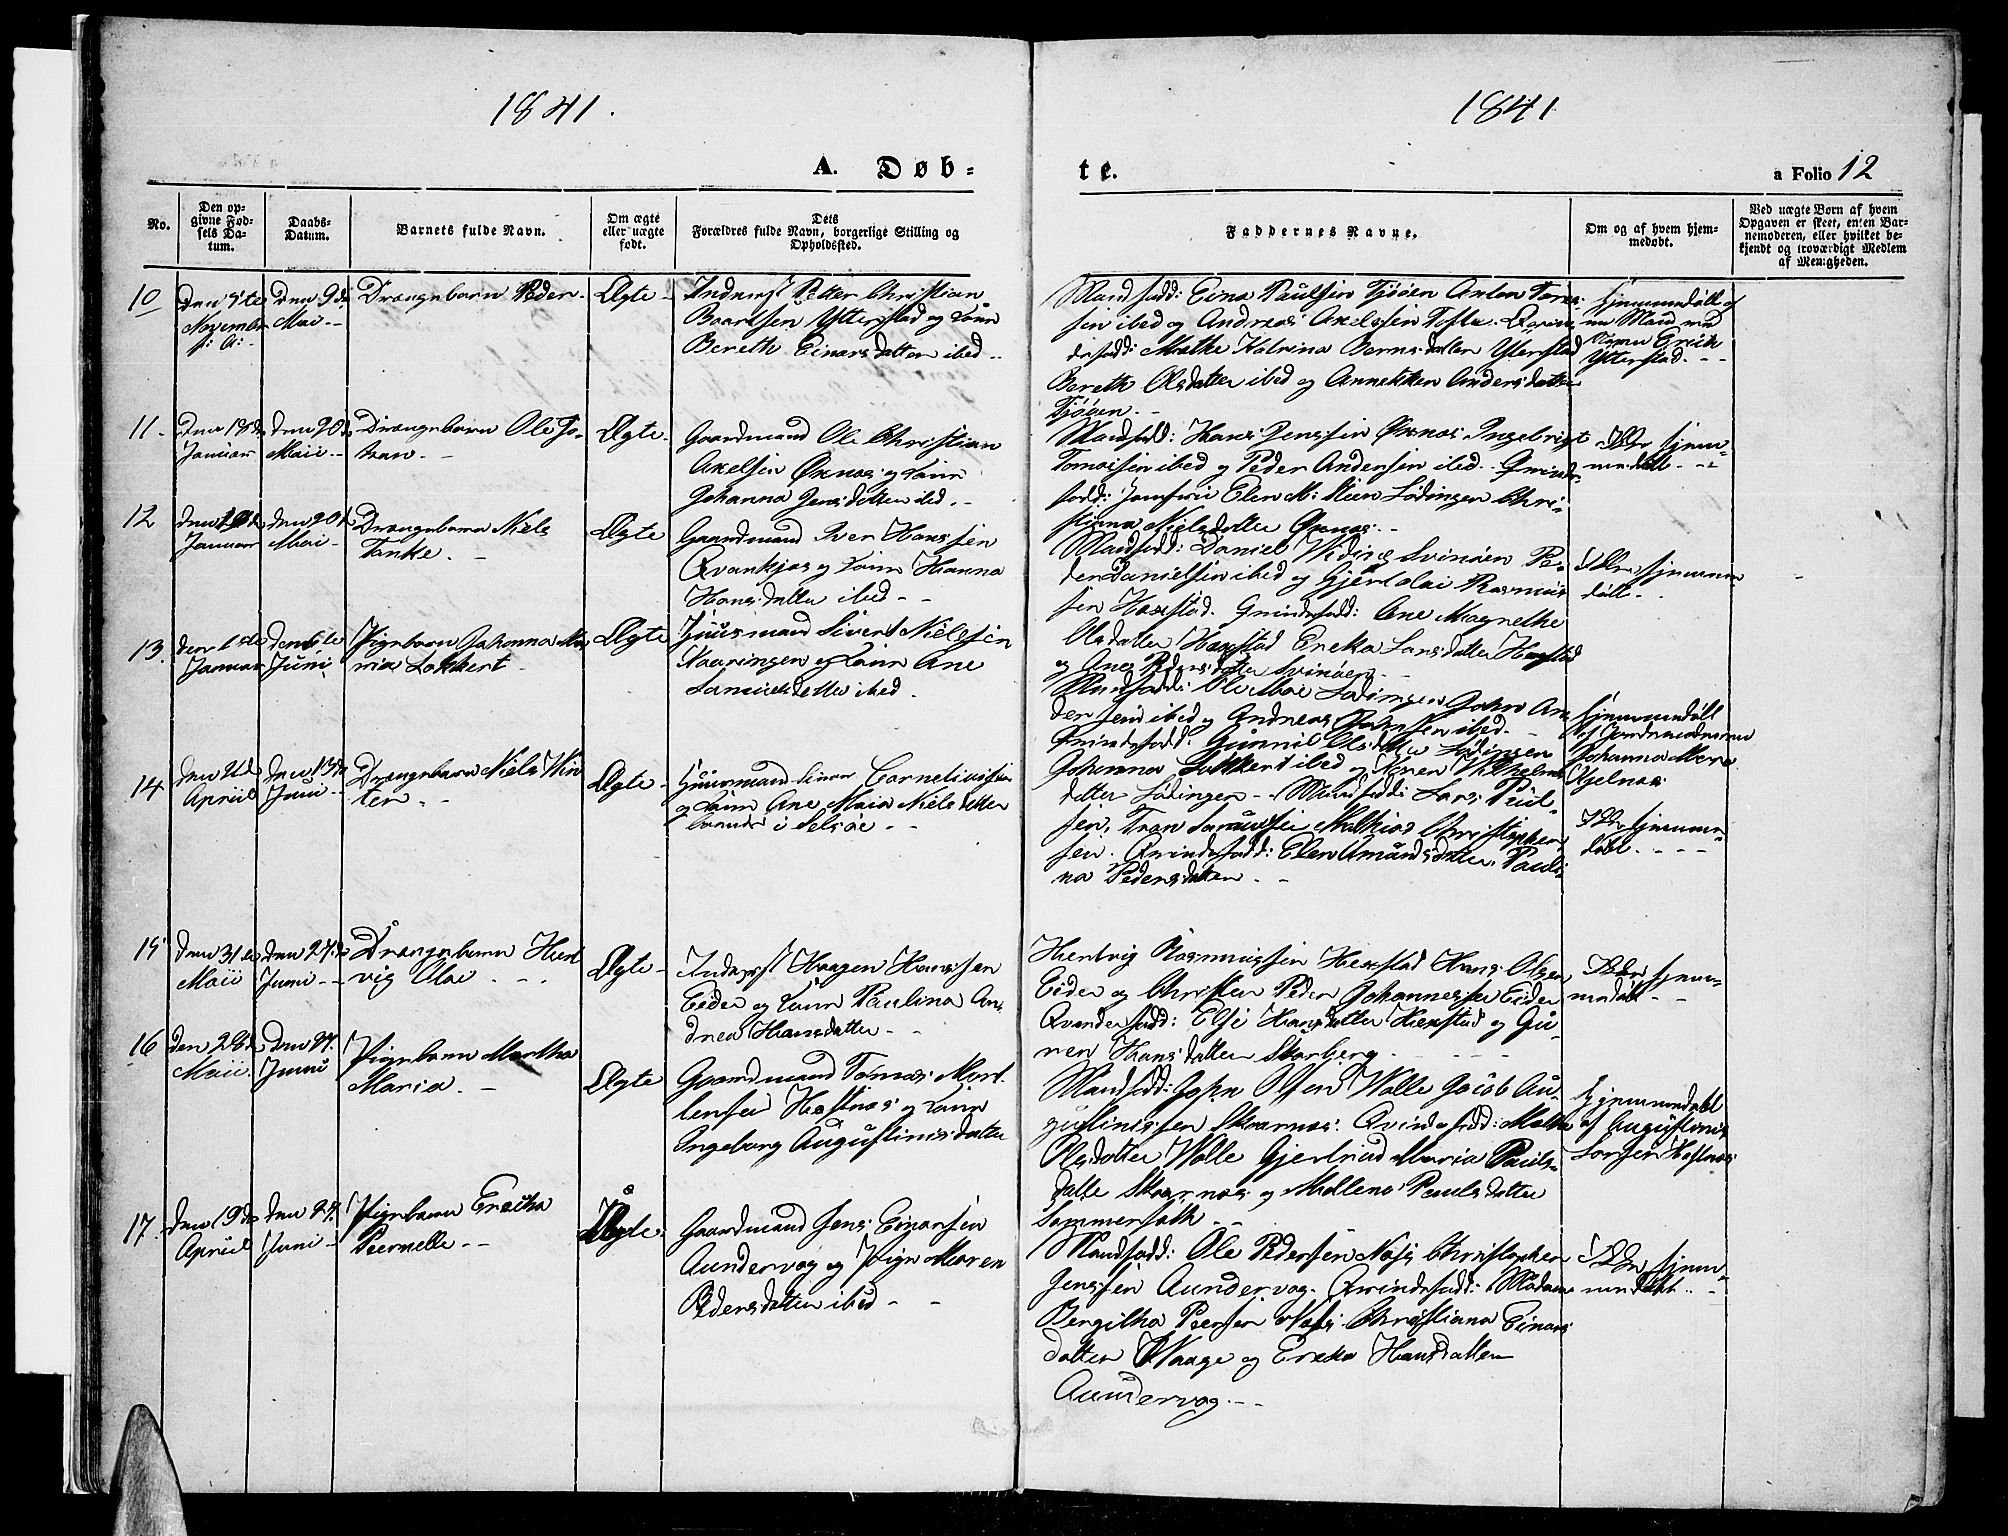 1841.
1841
A. Døb-
te.
a Folio 12
No.
Den op-
givne Fød-
sels Da-
tum.
Daabs-
Datum.
Barnets fulde Navn.
Om ægte
eller uægte
født.
Dets
Forældres fulde Navn, borgerlige Stilling og
Opholdssted.
Faddernes Navne.
Om og af hvem hjem-
medøbt.
Ved uægte Børn af hvem
Opgaven er skeet, enten Bar-
nemoderen, eller hvilket be-
kjendt og troværdigt Medlem
af Menigheden.
10
den 5te
November
f: A:
den 9de
Mai
Drængebarn Peder
Ægte
Inderst Petter Christian
Baardsen Ytterstad og Kone
Bereth Einarsdatter ibed
Mandfadd: Einar Paulsen Tjøen Anton Tomas-
sen ibed og Andreas Axelsen Qvin-
defadd: Mathe Katrina Berntsdatter Ytterstad
Bereth Olsdatter ibed og Annekken Andersdatter
Tjøen.
Hjemmedøbt af
Mand
Erich
Ytterstad.
11.
Den 18de
Januar
den 20de
Maii
Drængebarn Ole Jo-
han
Ægte
Gaardmand Ole Christian
Axelsen Øxnæs og Kone
Johanna Jensdatter ibed
Mandfadd: Hans Jenssen Øxnæs Ingebrigt
Tomassen ibed og Peder Andersen ibed. Qvinde-
fadd: Jomfrue Elen M: Steen Lødingen Chri-
stianna Nielsdatter Øxnæs
Ikke hjem-
medøbt
12
den
Januar
den 20de
Mai
Drængebarn Niels
Tanke
Ægte
Gaardmand Iver Hanssen
Qvankjos og Kone Hanna
Hansdatter ibed
Mandfadd: Daniel Widing Svinøen Pe-
der Danielsen ibed og Gjert Olai Rasmus-
sen Hæxstad. Qvindefadd: Ane Magrethe
Olsdatter Hæxstad Ereka Larsdatter Hæxstad
og Ane Pedersdatter Svinøen
Ikke hjemme-
døbt
13.
den 1ste
Januar
den 6te
Juni
Pigebarn Johanna Ma-
ria Lokkert
Ægte
Huusmand Sivert Nielssen
Kaaringen og Kone Ane
Samuelsdatter ibed.
Mandfadd: Ole Moe Lødingen John An-
derssen ibed og Andreas Johnsen ibed.
Qvindefadd: Gunnil Olsdatter Lødingen
Johanna Lokkert ibed og Karen Wilhelms-
datter Lødingen
Hjemmedøbt
af Jordmoderen
Johanna Mar
Kjelnæs
14
den
Apriil
den 13de
Juni
Drængebarn Niels Win-
ter
Ægte
Huusmand Einar Corneliussen
og Kone Ane Maria Nielsdatter
boende i Selsøe
Mandfadd: Lars Paul-
sen, Tran Mathias Christophers-
sen. Qvindefadd: Elen Amundsdatter, Pauli-
na Pedersdatter
Ikke hjemme-
døbt
15
den 31te
Maii
den 27de
Juni
Drængebarn Hert-
vig Olai
Ægte
Inderst Haagen Hanssen
Eidet og Kone Paulina An-
drea Hansdatter
Hertvig Rasmussen Hæxstad Hans Olsen
Eidet og Christen Peder Johannessen Eidet
Qvindefadd: Else Hansdatter Hæxstad og Gu-
ren Hansdatter Skarberg
Ikke hjem-
medøbt
16
den 28de
Maii
den 27.
Juni
Pigebarn Martha
Maria
Ægte
Gaardmand Tomas Mort-
tensen Hæstnæs og Kone
Ingeborg Augustinusdatter
Mandfadd: John Olsen Wolle Jacob Au-
gustinussen Skarnæs. Qvindefadd: Mathe
Olsdatter Wolle Gjertrud Maria Pauls-
datter Skarnæs og Mallena Paulsdatter
Sommersæth
Hjemmedøbt
af Augustinus
Larsen Hæstnæs
17.
den 19de
Apriil
den 27.
Juni
Pigebarn Eretha
Peernelle
Ægte
Gaardmand Jens Einarsen
Aundervog og Pige Maren
Pedersdatter ibed
Mandfadd: Ole Pedersen Næss Christopher
Jenssen Aundervog. Qvindefadd: Madam
Bergitha Peersen Næss Christiana Einars-
datter Waage og Ereka Hansdatter
Aundervog.
Ikke hjem-
medøbt